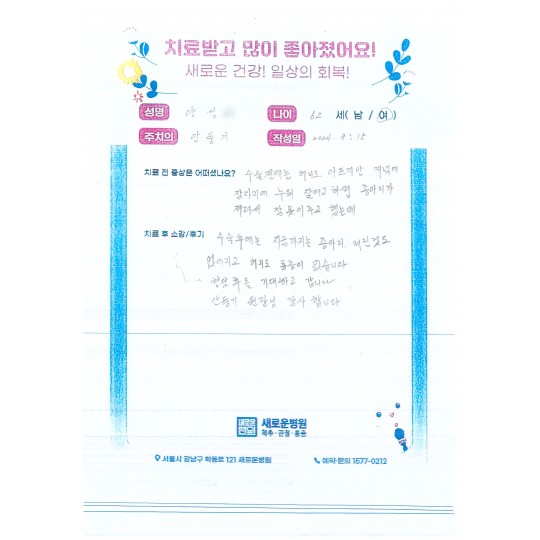 치료받고 많이 좋아졌어요!
새로운 건강! 일상의 회복!
성명 안 나이 62 세( 남 / 여 )
주치의 안풍기 작성일 2024. 8. 15
치료 전 증상은 어떠셨나요? 수술전에는 허리도 아프지만 저녁에
잠자기에 누워 잘려고 하면 종아리가
저려서 잠 못이루고 했는데
치료 후 소감/후기 수술후에는 지금까지는 종아리 저린것도
없어지고 허리도 통증이 없습니다
후를 기대하고 갑니다
원장님 감사 합니다
새로운병원
척추·관절·통증
서울시 강남구 학동로 121 새로운병원 예약·문의 1577-0212